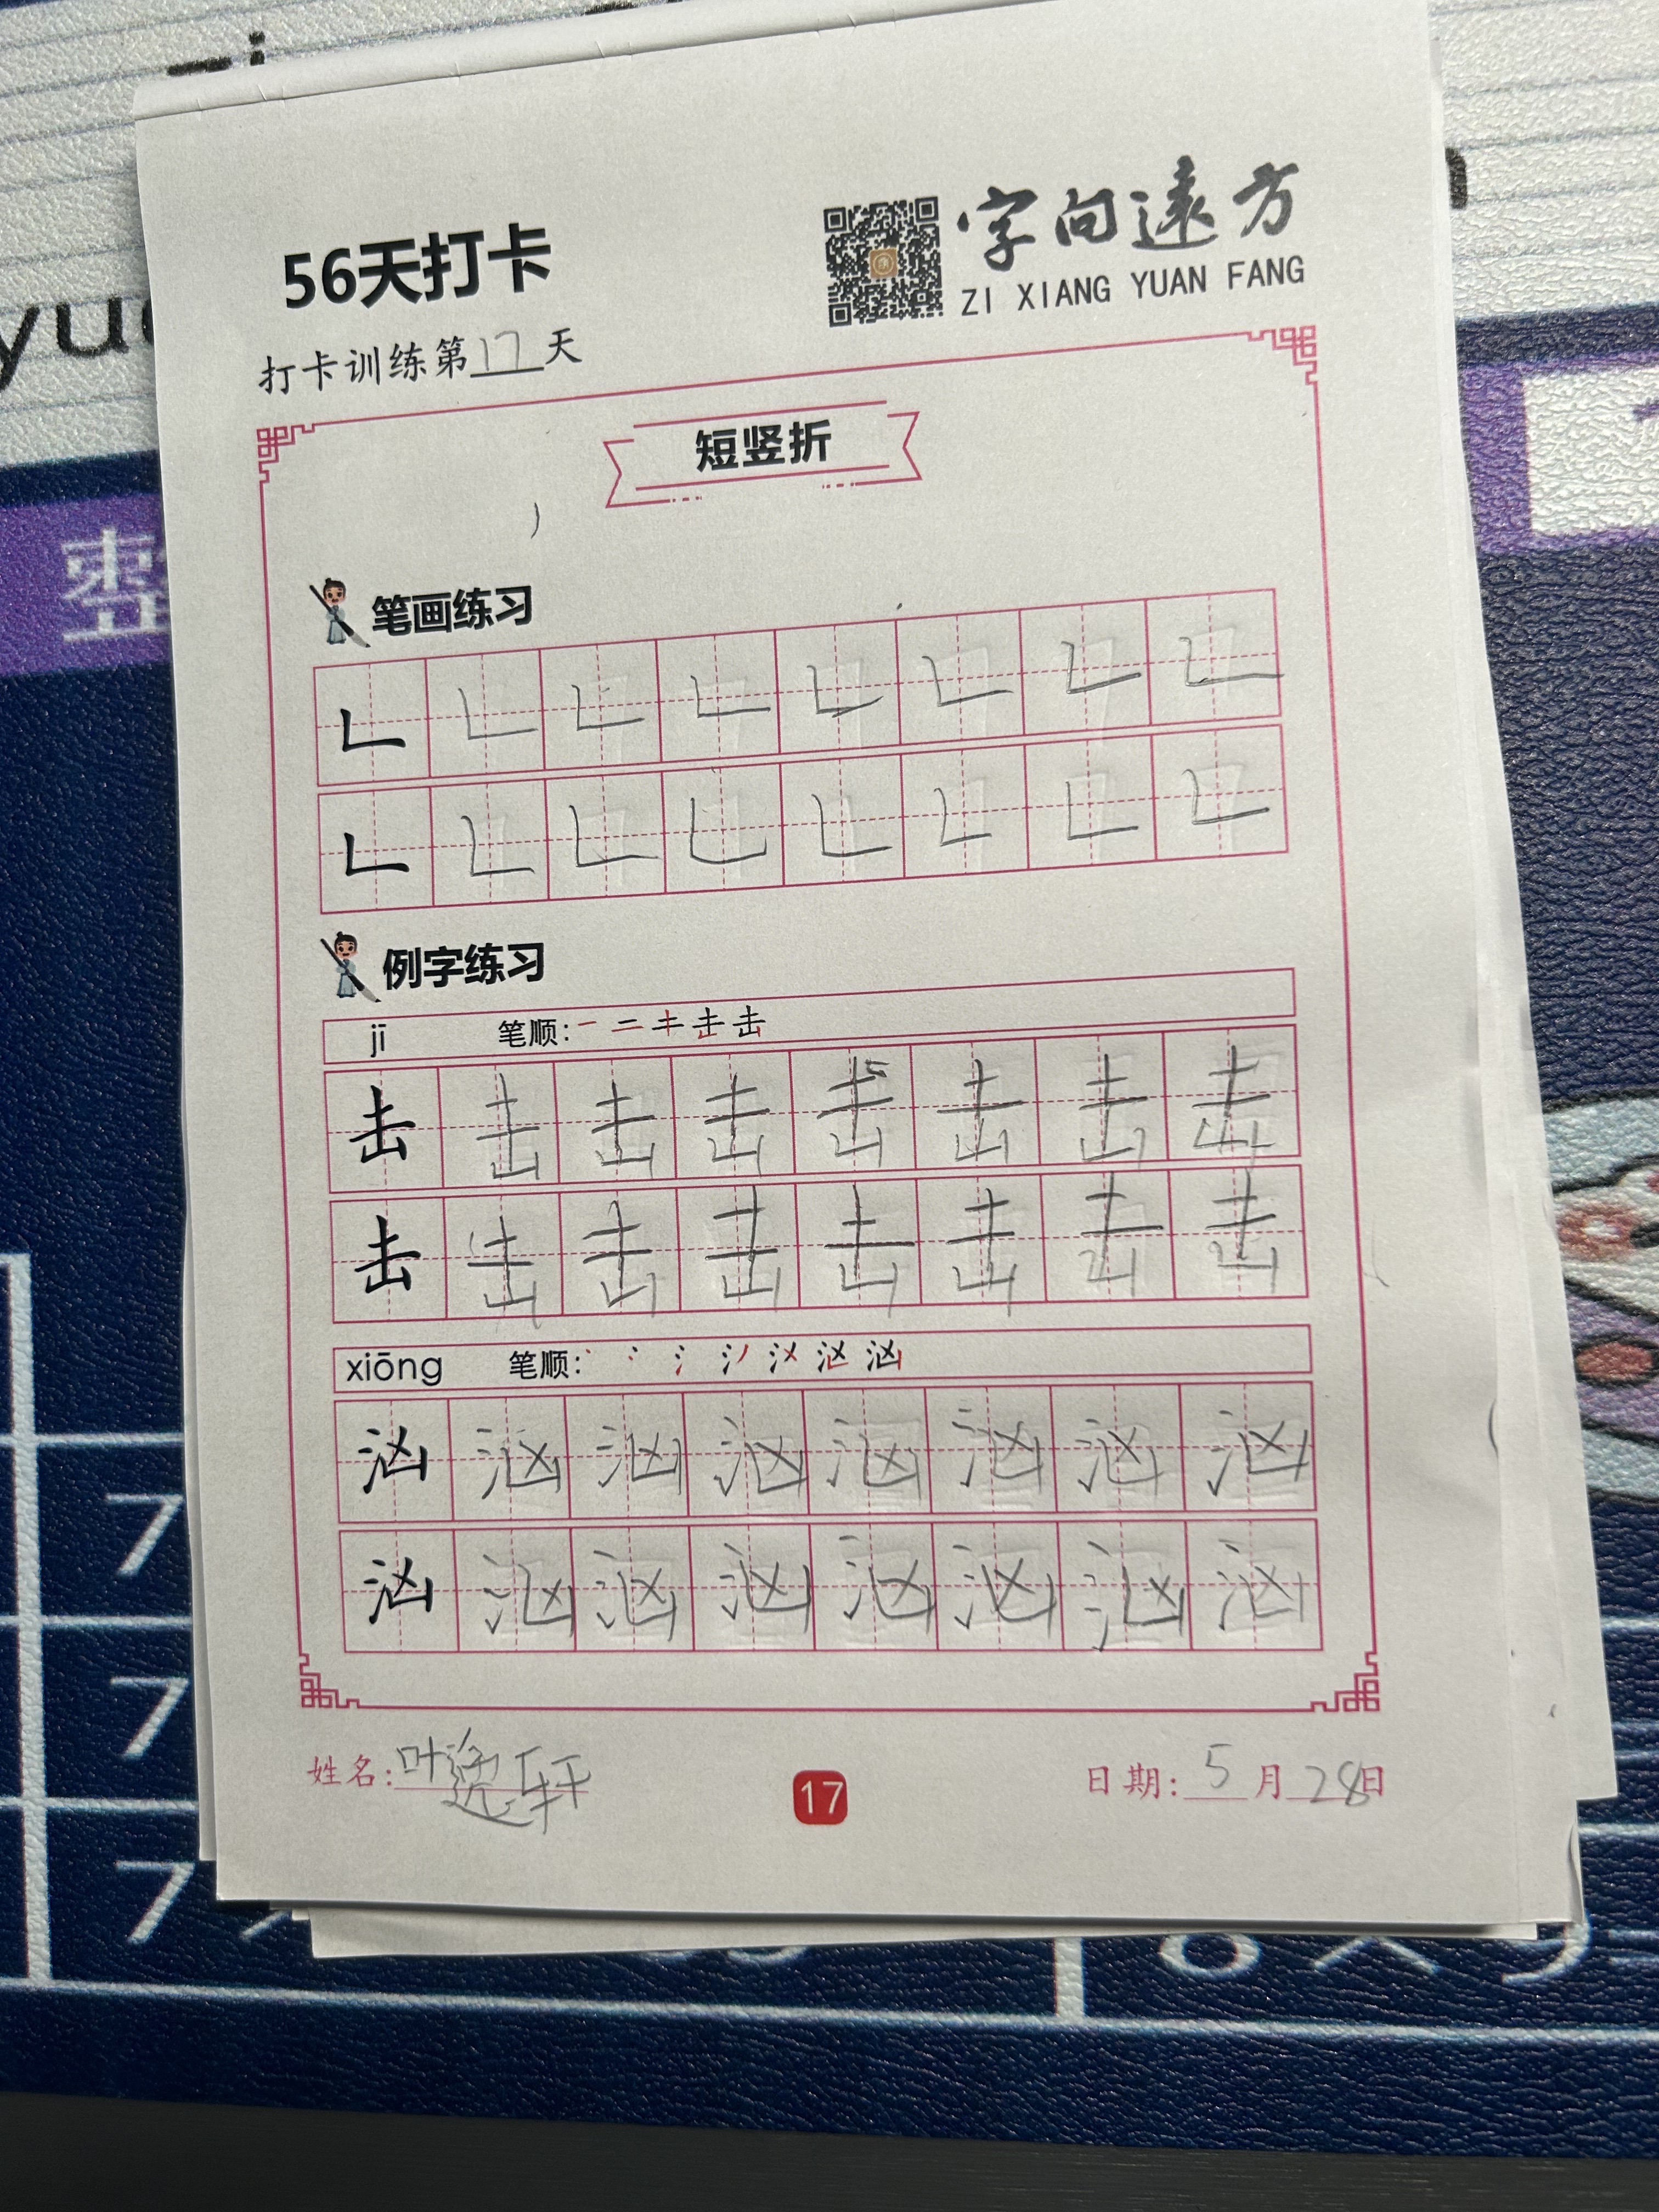 56天打卡
字向遠方
ZI XIANG YUAN FANG
打卡训练第17天
短竖折
笔画练习
例字练习
jī 笔顺: 击
击 击 击 击 击 击 击 击
击 击 击 击 击 击 击 击
xiōng 笔顺: 汹
汹 汹 汹 汹 汹 汹 汹 汹
汹 汹 汹 汹 汹 汹 汹 汹
姓名: 叶 轩
17
日期: 5月28日